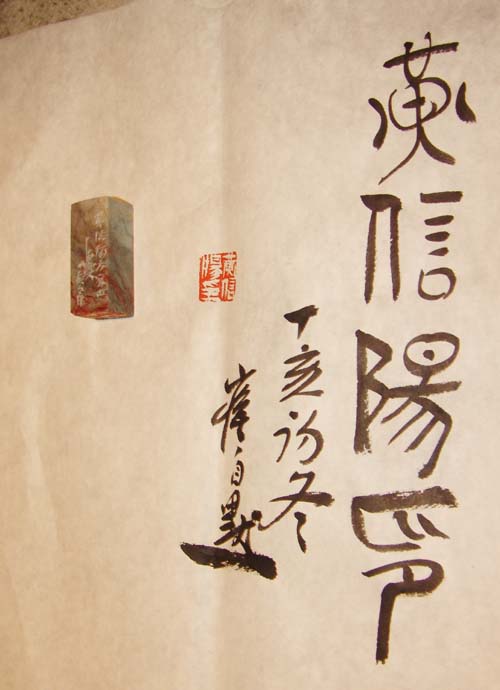 黄信陽印
丁亥初冬
崔自默
黄信
陽印